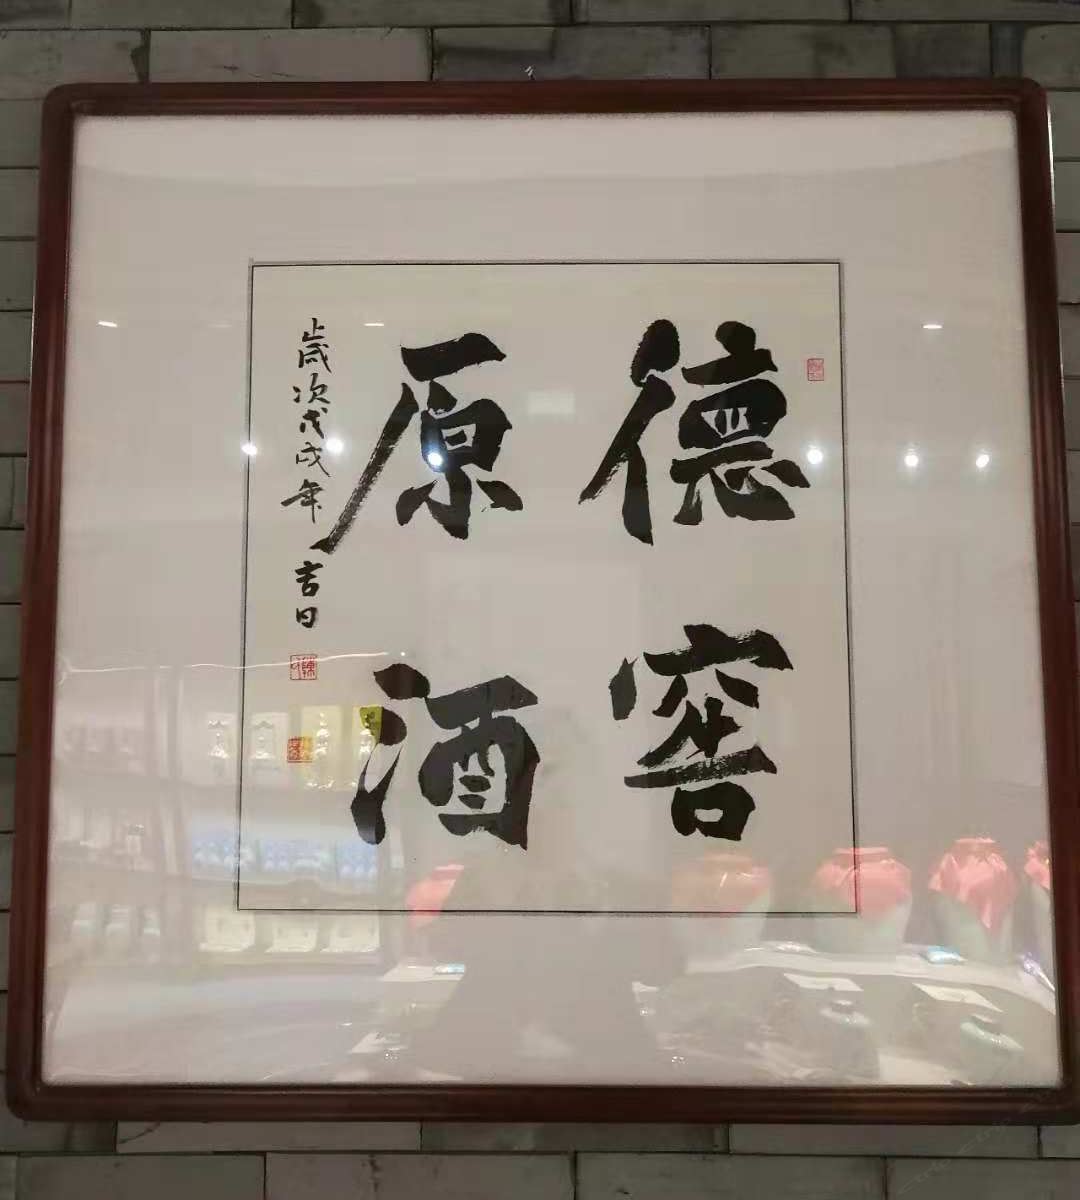 德窖
原酒
歲次戊戌年吉日